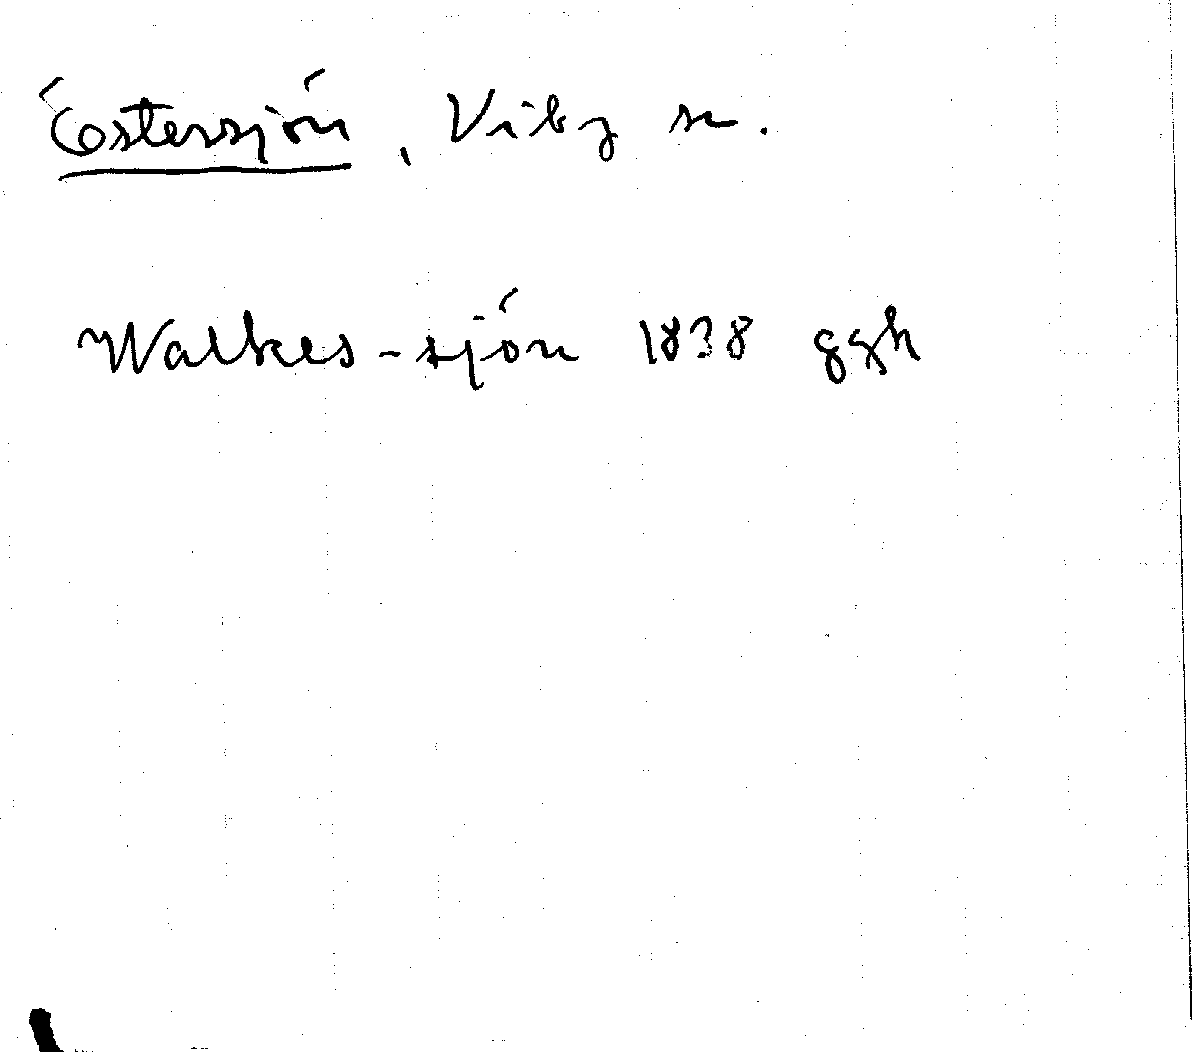 Östersjön, Viby sn.
Walkes-sjön 1838 ggh